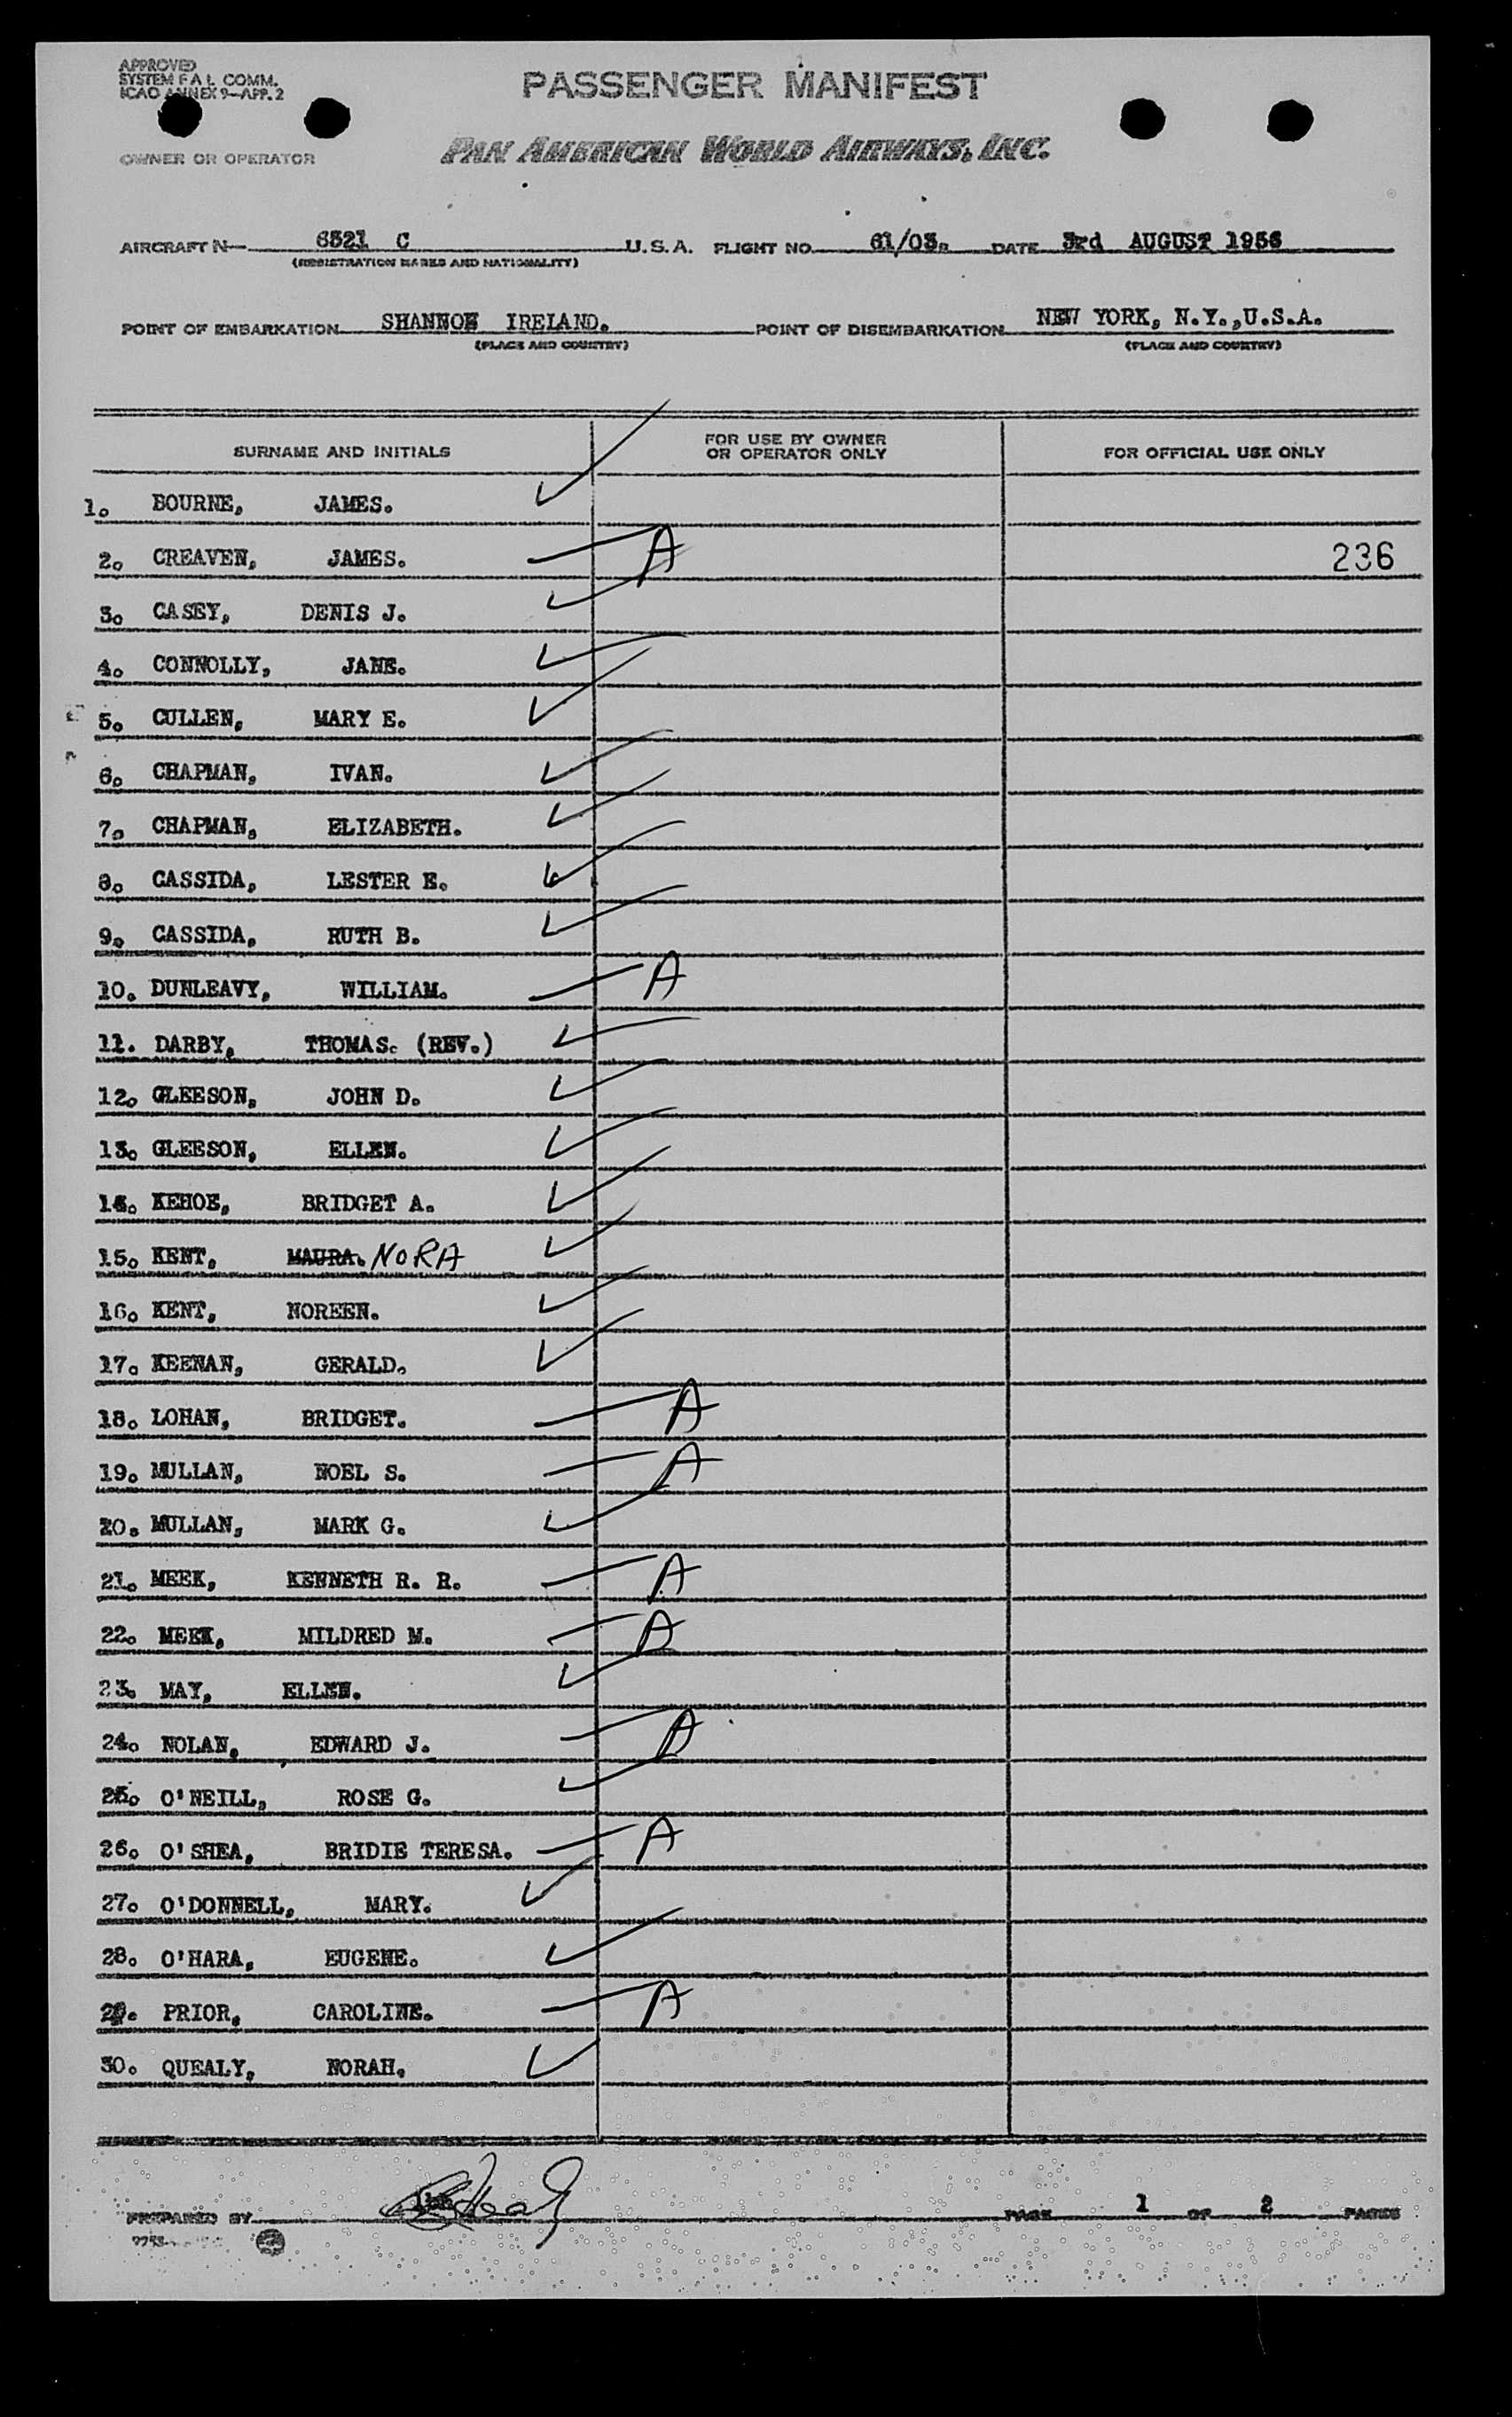 APPROVED
SYSTEM F A L COMM.
ICAO ANNEX 9—APP. 2
PASSENGER MANIFEST
OWNER OR OPERATOR
PAN AMERICAN WORLD AIRWAYS, INC.
AIRCRAFT N— 6521 C U.S.A. FLIGHT NO. 61/03. DATE 3rd AUGUST 1956
(REGISTRATION MARKS AND NATIONALITY)
POINT OF EMBARKATION SHANNON IRELAND. POINT OF DISEMBARKATION NEW YORK, N.Y.,U.S.A.
(PLACE AND COUNTRY) (PLACE AND COUNTRY)
SURNAME AND INITIALS FOR USE BY OWNER OR OPERATOR ONLY FOR OFFICIAL USE ONLY
1. BOURNE, JAMES.
2. CREAVEN, JAMES. A 236
3. CASEY, DENIS J.
4. CONNOLLY, JANE.
5. CULLEN, MARY E.
6. CHAPMAN, IVAN.
7. CHAPMAN, ELIZABETH.
8. CASSIDA, LESTER E.
9. CASSIDA, RUTH B.
10. DUNLEAVY, WILLIAM. A
11. DARBY, THOMAS. (REV.)
12. GLEESON, JOHN D.
13. GLEESON, ELLEN.
14. KEHOE, BRIDGET A.
15. KENT, MAURA. NORA
16. KENT, NOREEN.
17. KEENAN, GERALD.
18. LOHAN, BRIDGET. A
19. MULLAN, NOEL S. A
20. MULLAN, MARK G.
21. MEEK, KENNETH R. R. A
22. MEEK, MILDRED M. A
23. MAY, ELLEN.
24. NOLAN, EDWARD J. A
25. O'NEILL, ROSE G.
26. O'SHEA, BRIDIE TERESA. A
27. O'DONNELL, MARY.
28. O'HARA, EUGENE.
29. PRIOR, CAROLINE. A
30. QUEALY, NORAH.
PREPARED BY PAGE 1 OF 2 PAGES